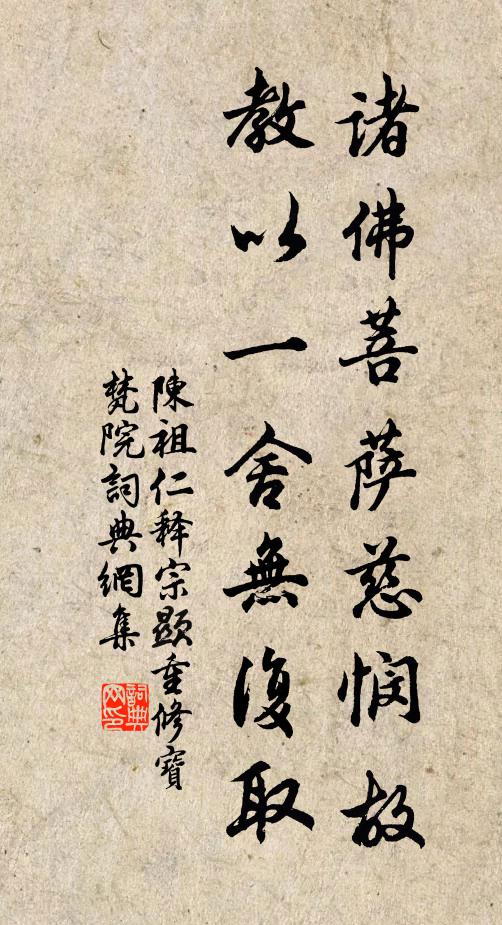 諸佛菩薩慈悯故
教以一舍無復取
陳祖仁释宗顕重修寶
梵院詞典網集
詞典网印